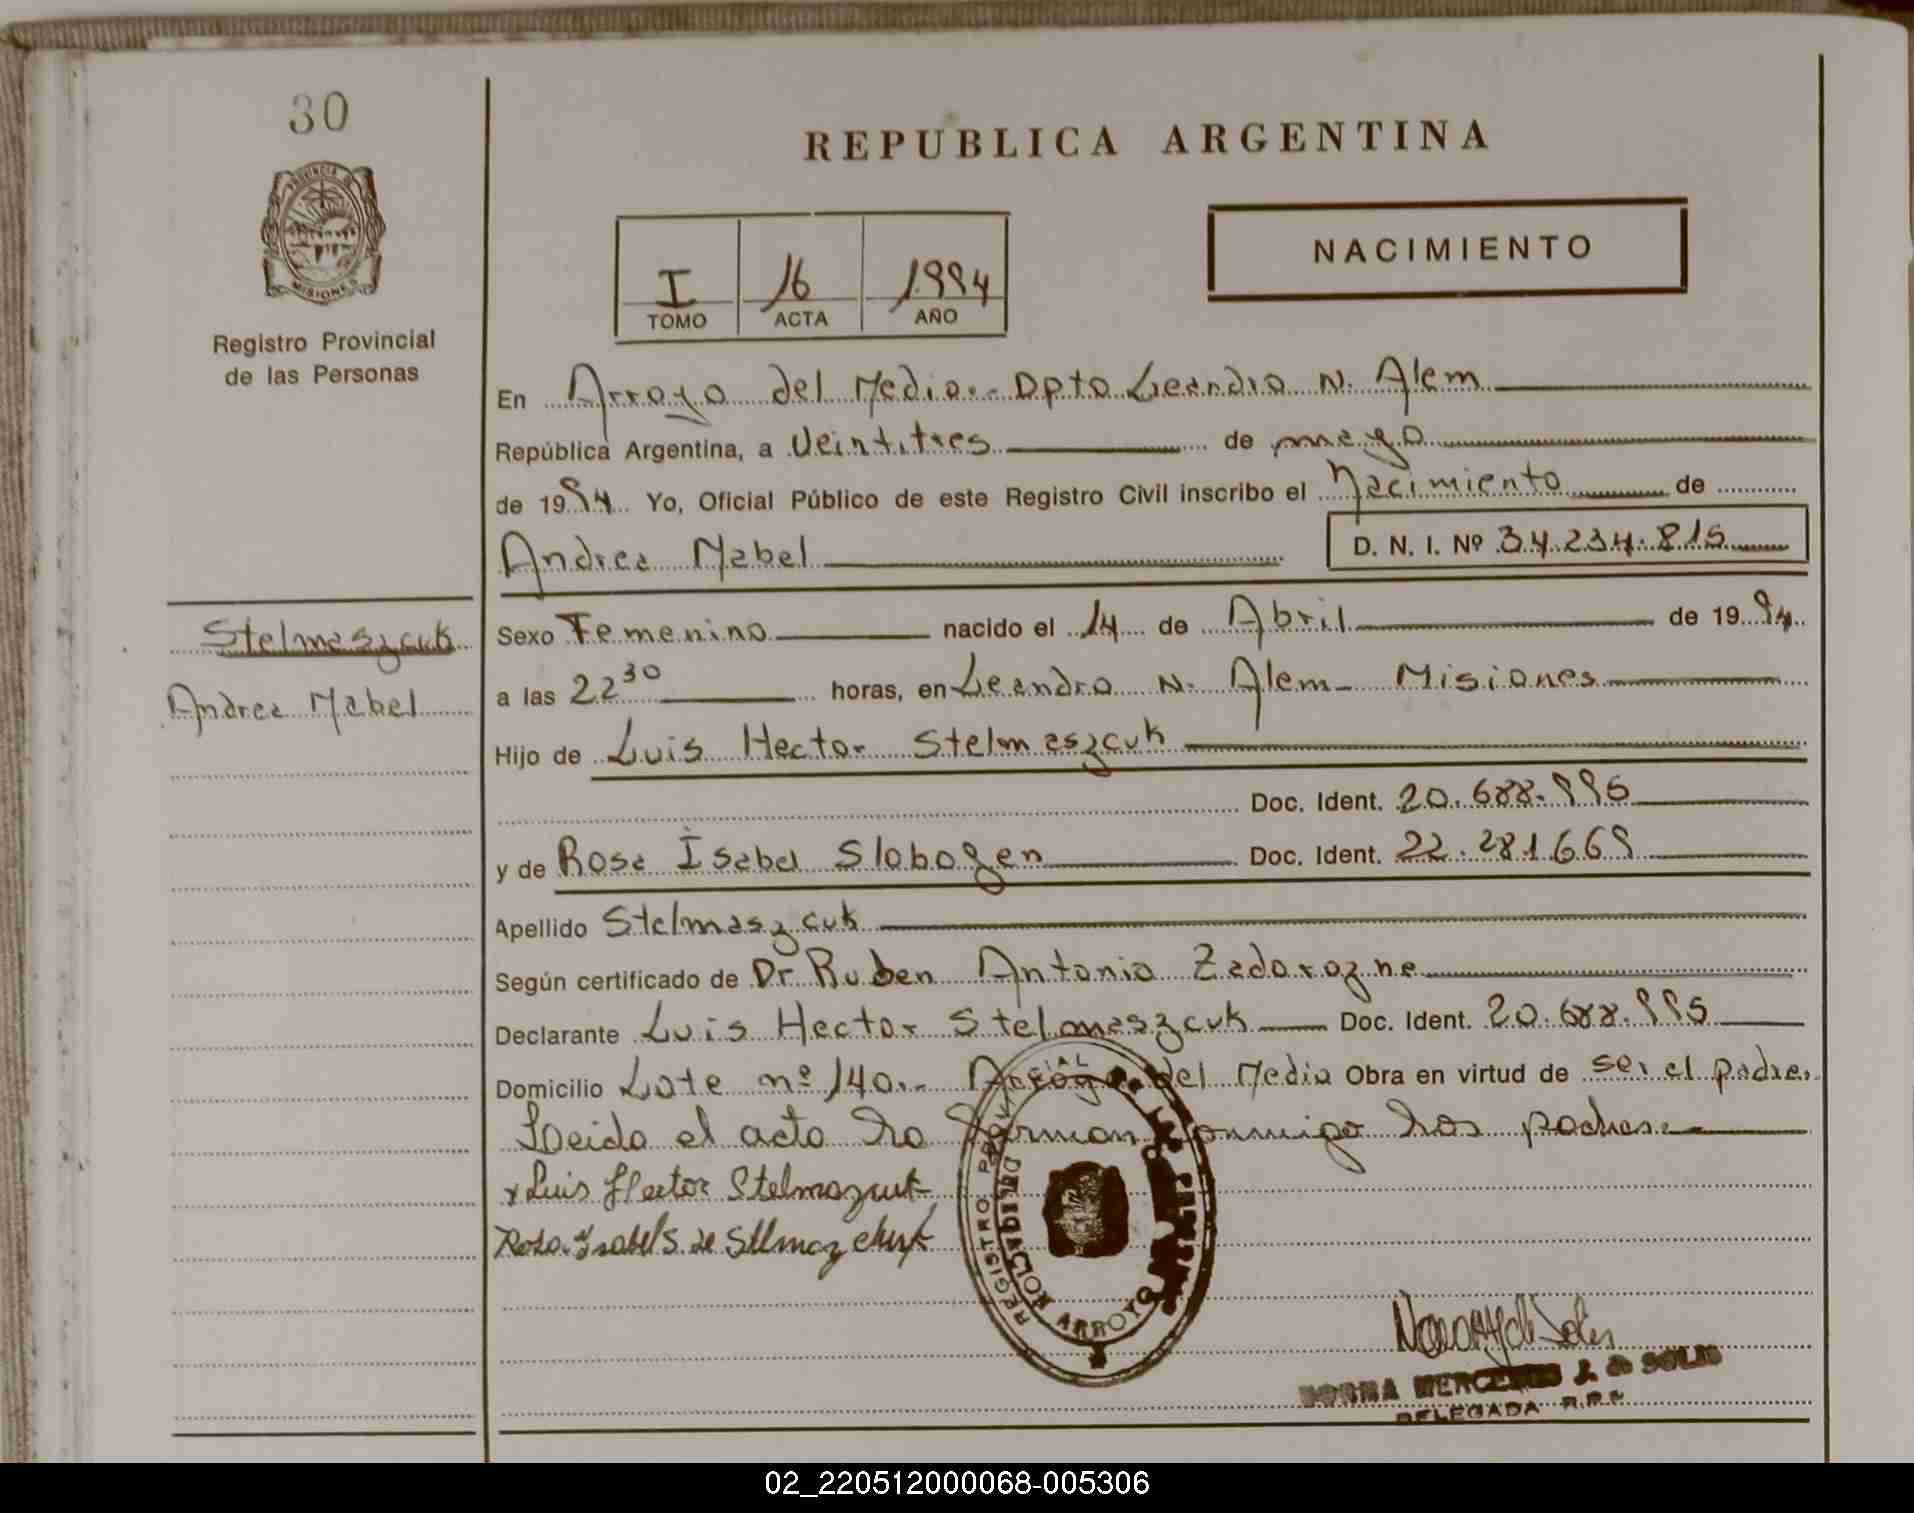 30
PROVINCIA DE
MISIONES
Registro Provincial
de las Personas
Stelmaszcuk
Andrea Mabel
REPUBLICA ARGENTINA
NACIMIENTO
I 16 1994
TOMO ACTA AÑO
En Arroyo del Medio.- Dpto Leandro N. Alem
República Argentina, a Veintitres de mayo
de 1994 Yo, Oficial Público de este Registro Civil inscribo el Nacimiento de
Andrea Mabel D. N. I. Nº 34.234.815
Sexo Femenino nacido el 14 de Abril de 1994
a las 22 30 horas, en Leandro N. Alem - Misiones
Hijo de Luis Hector Stelmaszcuk
Doc. Ident. 20.688.995
y de Rosa Isabel Slobogen Doc. Ident. 22.281.669
Apellido Stelmaszcuk
Según certificado de Dr Ruben Antonio Zadorozne
Declarante Luis Hector Stelmaszcuk Doc. Ident. 20.688.995
Domicilio Lote nº 140.- Arroyo del Medio Obra en virtud de ser el padre.
Leida el acta la firman conmigo los padres.
x Luis Hector Stelmazcuk
Rosa Isabel S. de Stelmazchuk
REGISTRO PROVINCIAL
DELEGACION ARROYO
NORMA MERCEDES J. de SOLIS
DELEGADA R.P.P.
02_220512000068-005306